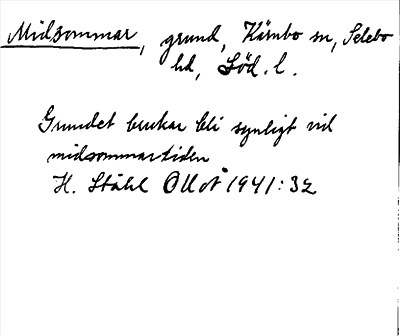 Midsommar, grund, Kärnbo sn, Selebo
hd, Söd. l.
Grundet brukar bli synligt vid
midsommartiden
H. Ståhl OUoÅ 1941:32